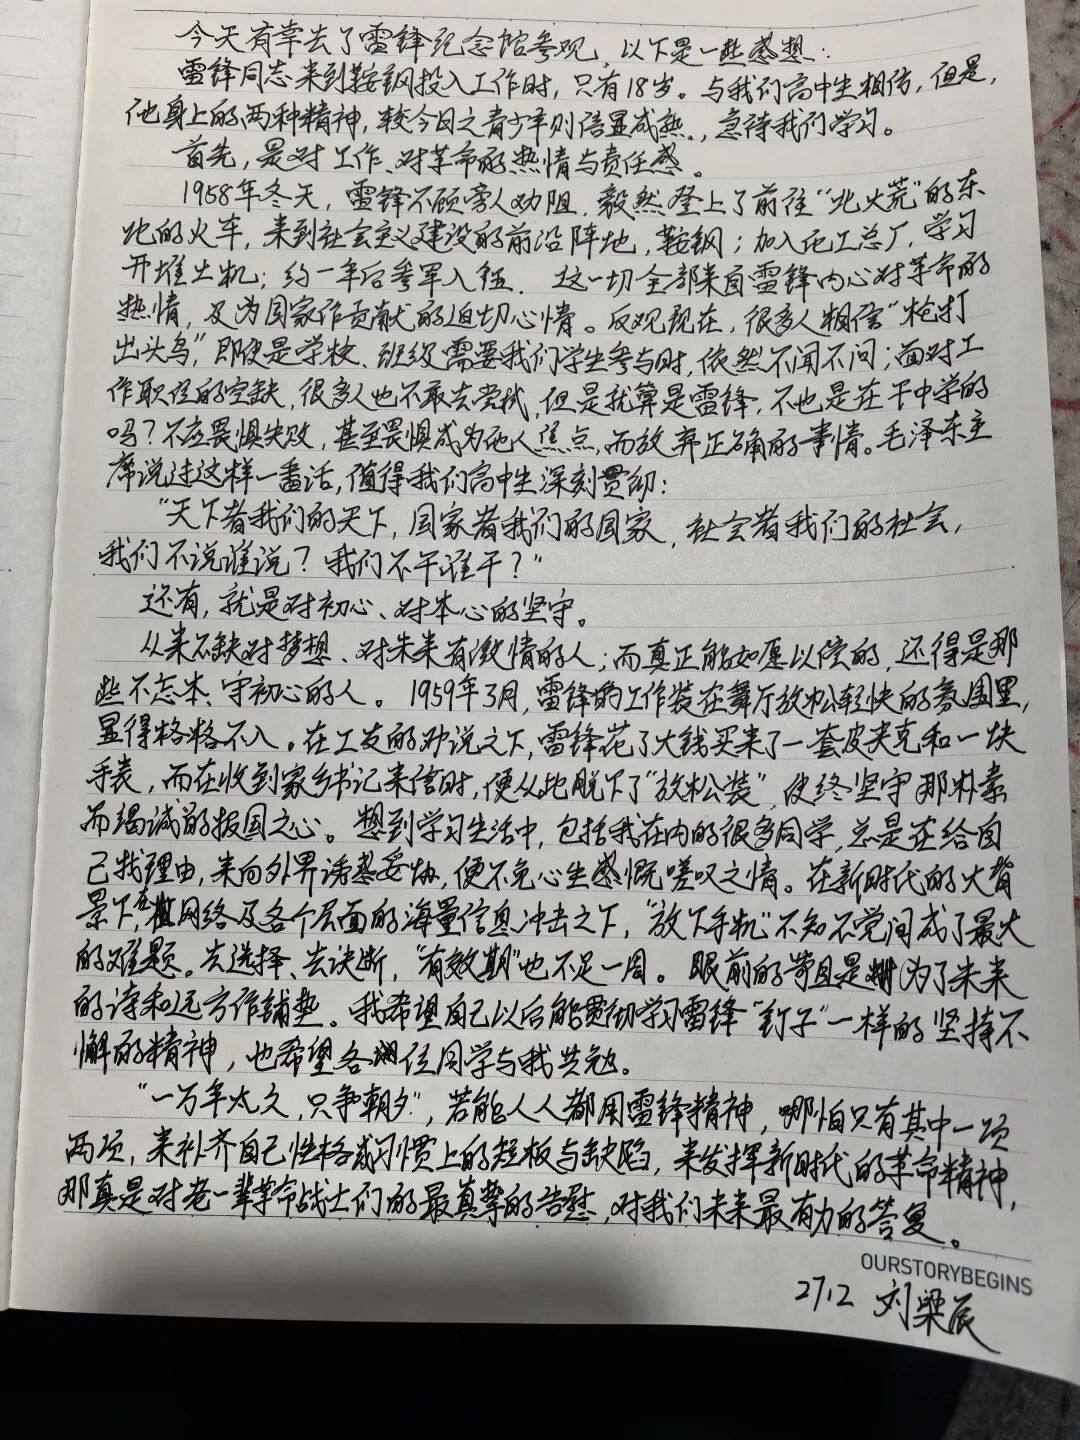 今天有幸去了雷锋纪念馆参观，以下是一些感想：
雷锋同志来到鞍钢投入工作时，只有18岁。与我们高中生相仿，但是，
他身上的两种精神，较今日之青少年则倍显成熟，急待我们学习。
首先，是对工作、对革命的热情与责任感。
1958年冬天，雷锋不顾旁人劝阻，毅然登上了前往“北大荒”的东
北的火车，来到社会主义建设的前沿阵地，鞍钢；加入化工总厂，学习
开推土机；约一年后参军入伍。这一切全部来自雷锋内心对革命的
热情，及为国家作贡献的迫切心情。反观现在，很多人相信“枪打
出头鸟”，即使是学校、班级需要我们学生参与时，依然不闻不问；面对工
作职位的空缺，很多人也不敢去尝试，但是就算是雷锋，不也是在干中学的
吗？不应畏惧失败，甚至畏惧成为他人焦点，而放弃正确的事情。毛泽东主
席说过这样一番话，值得我们高中生深刻贯彻：
“天下者我们的天下，国家者我们的国家，社会者我们的社会，
我们不说谁说？我们不干谁干？”
还有，就是对初心、对本心的坚守。
从来不缺对梦想、对未来有激情的人；而真正能如愿以偿的，还得是那
些不忘本、守初心的人。1959年3月，雷锋的工作装在舞厅放松轻快的氛围里，
显得格格不入。在工友的劝说之下，雷锋花了大钱买来了一套皮夹克和一块
手表，而在收到家乡书记来信时，便从此脱下了“放松装”，始终坚守那朴素
而竭诚的报国之心。想到学习生活中，包括我在内的很多同学，总是在给自
己找理由，来向外界诱惑妥协，便不免心生感慨嗟叹之情。在新时代的大背
景下，在网络及各个层面的海量信息冲击之下，“放下手机”不知不觉间成了最大
的难题。去选择、去决断，“有效期”也不足一周。眼前的苟且是为了未来
的诗和远方作铺垫。我希望自己以后能贯彻学习雷锋“钉子”一样的坚持不
懈的精神，也希望各位同学与我共勉。
“一万年太久，只争朝夕”，若能人人都用雷锋精神，哪怕只有其中一项
两项，来补齐自己性格或习惯上的短板与缺陷，来发挥新时代的革命精神，
那真是对老一辈革命战士们的最真挚的告慰，对我们未来最有力的答复。
OURSTORYBEGINS
27.2 刘梁辰